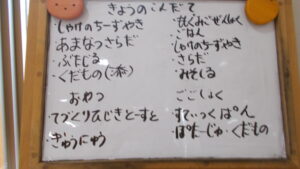 きょうのこんだて
しゃけのちーずやき
あまなつさらだ
・ぶたじる
・くだもの
おやつ
てづくりひじきとーすと
・ぎゅうにゅう
・ごはん
・しゃけのちーずやき
・さらだ
・みそしる
ごごしょく
・すてぃっくぱん
・ぽたーじゅ・くだもの